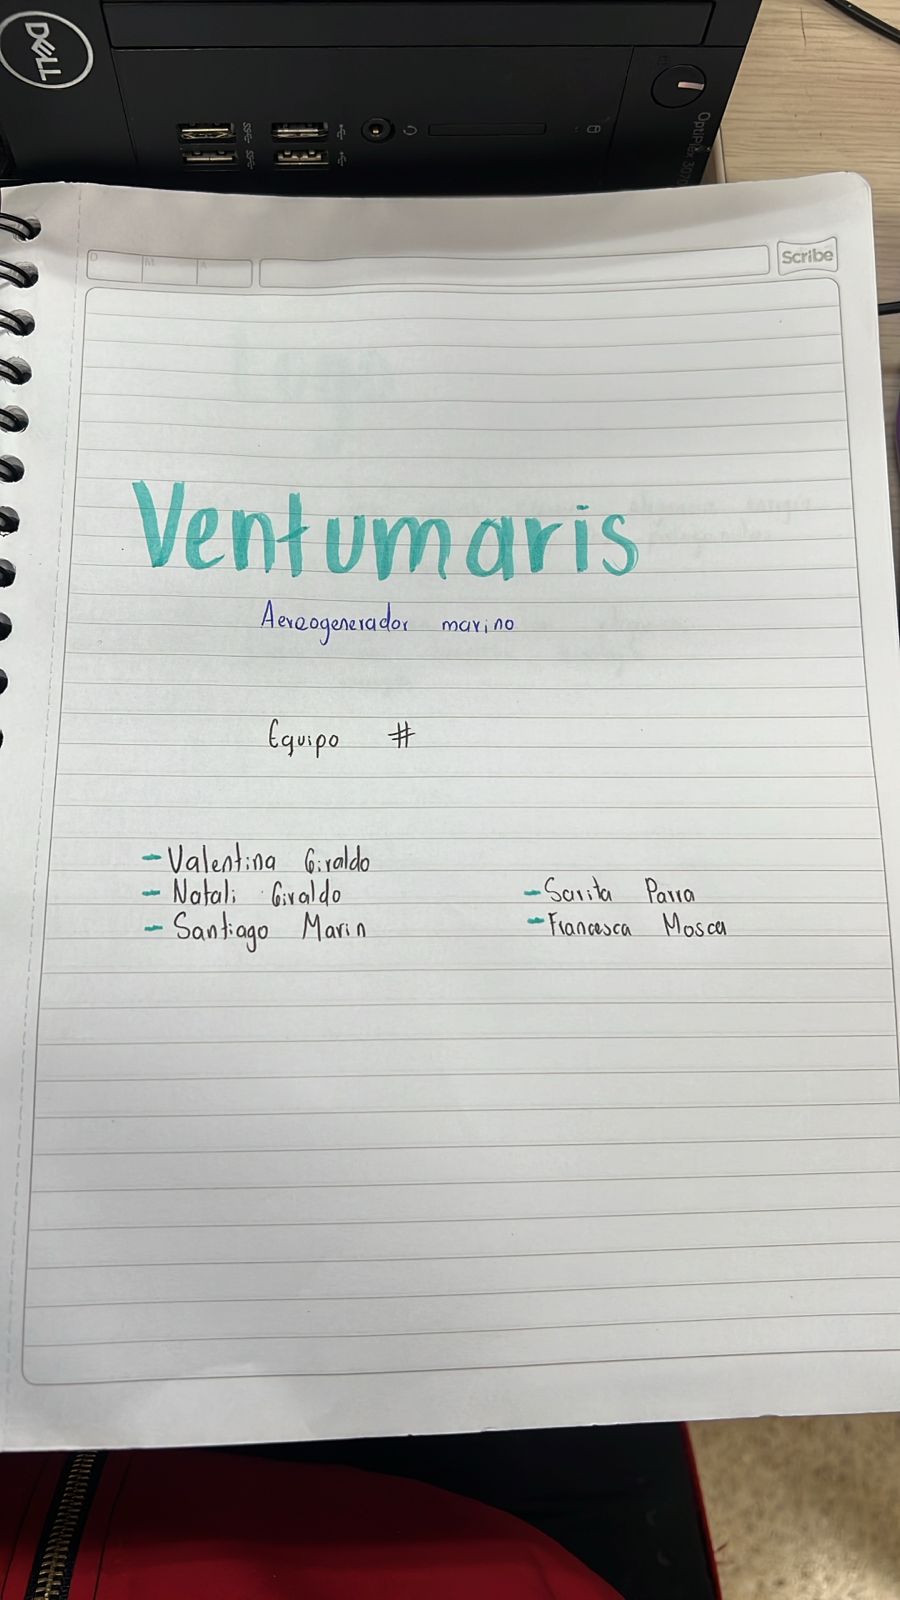 DELL
OptiPlex 3070
D M A
Scribe
Ventumaris
Aereogenerador marino
Equipo #
- Valentina Giraldo
- Natali Giraldo
- Santiago Marin
- Sarita Parra
- Francesca Mosca